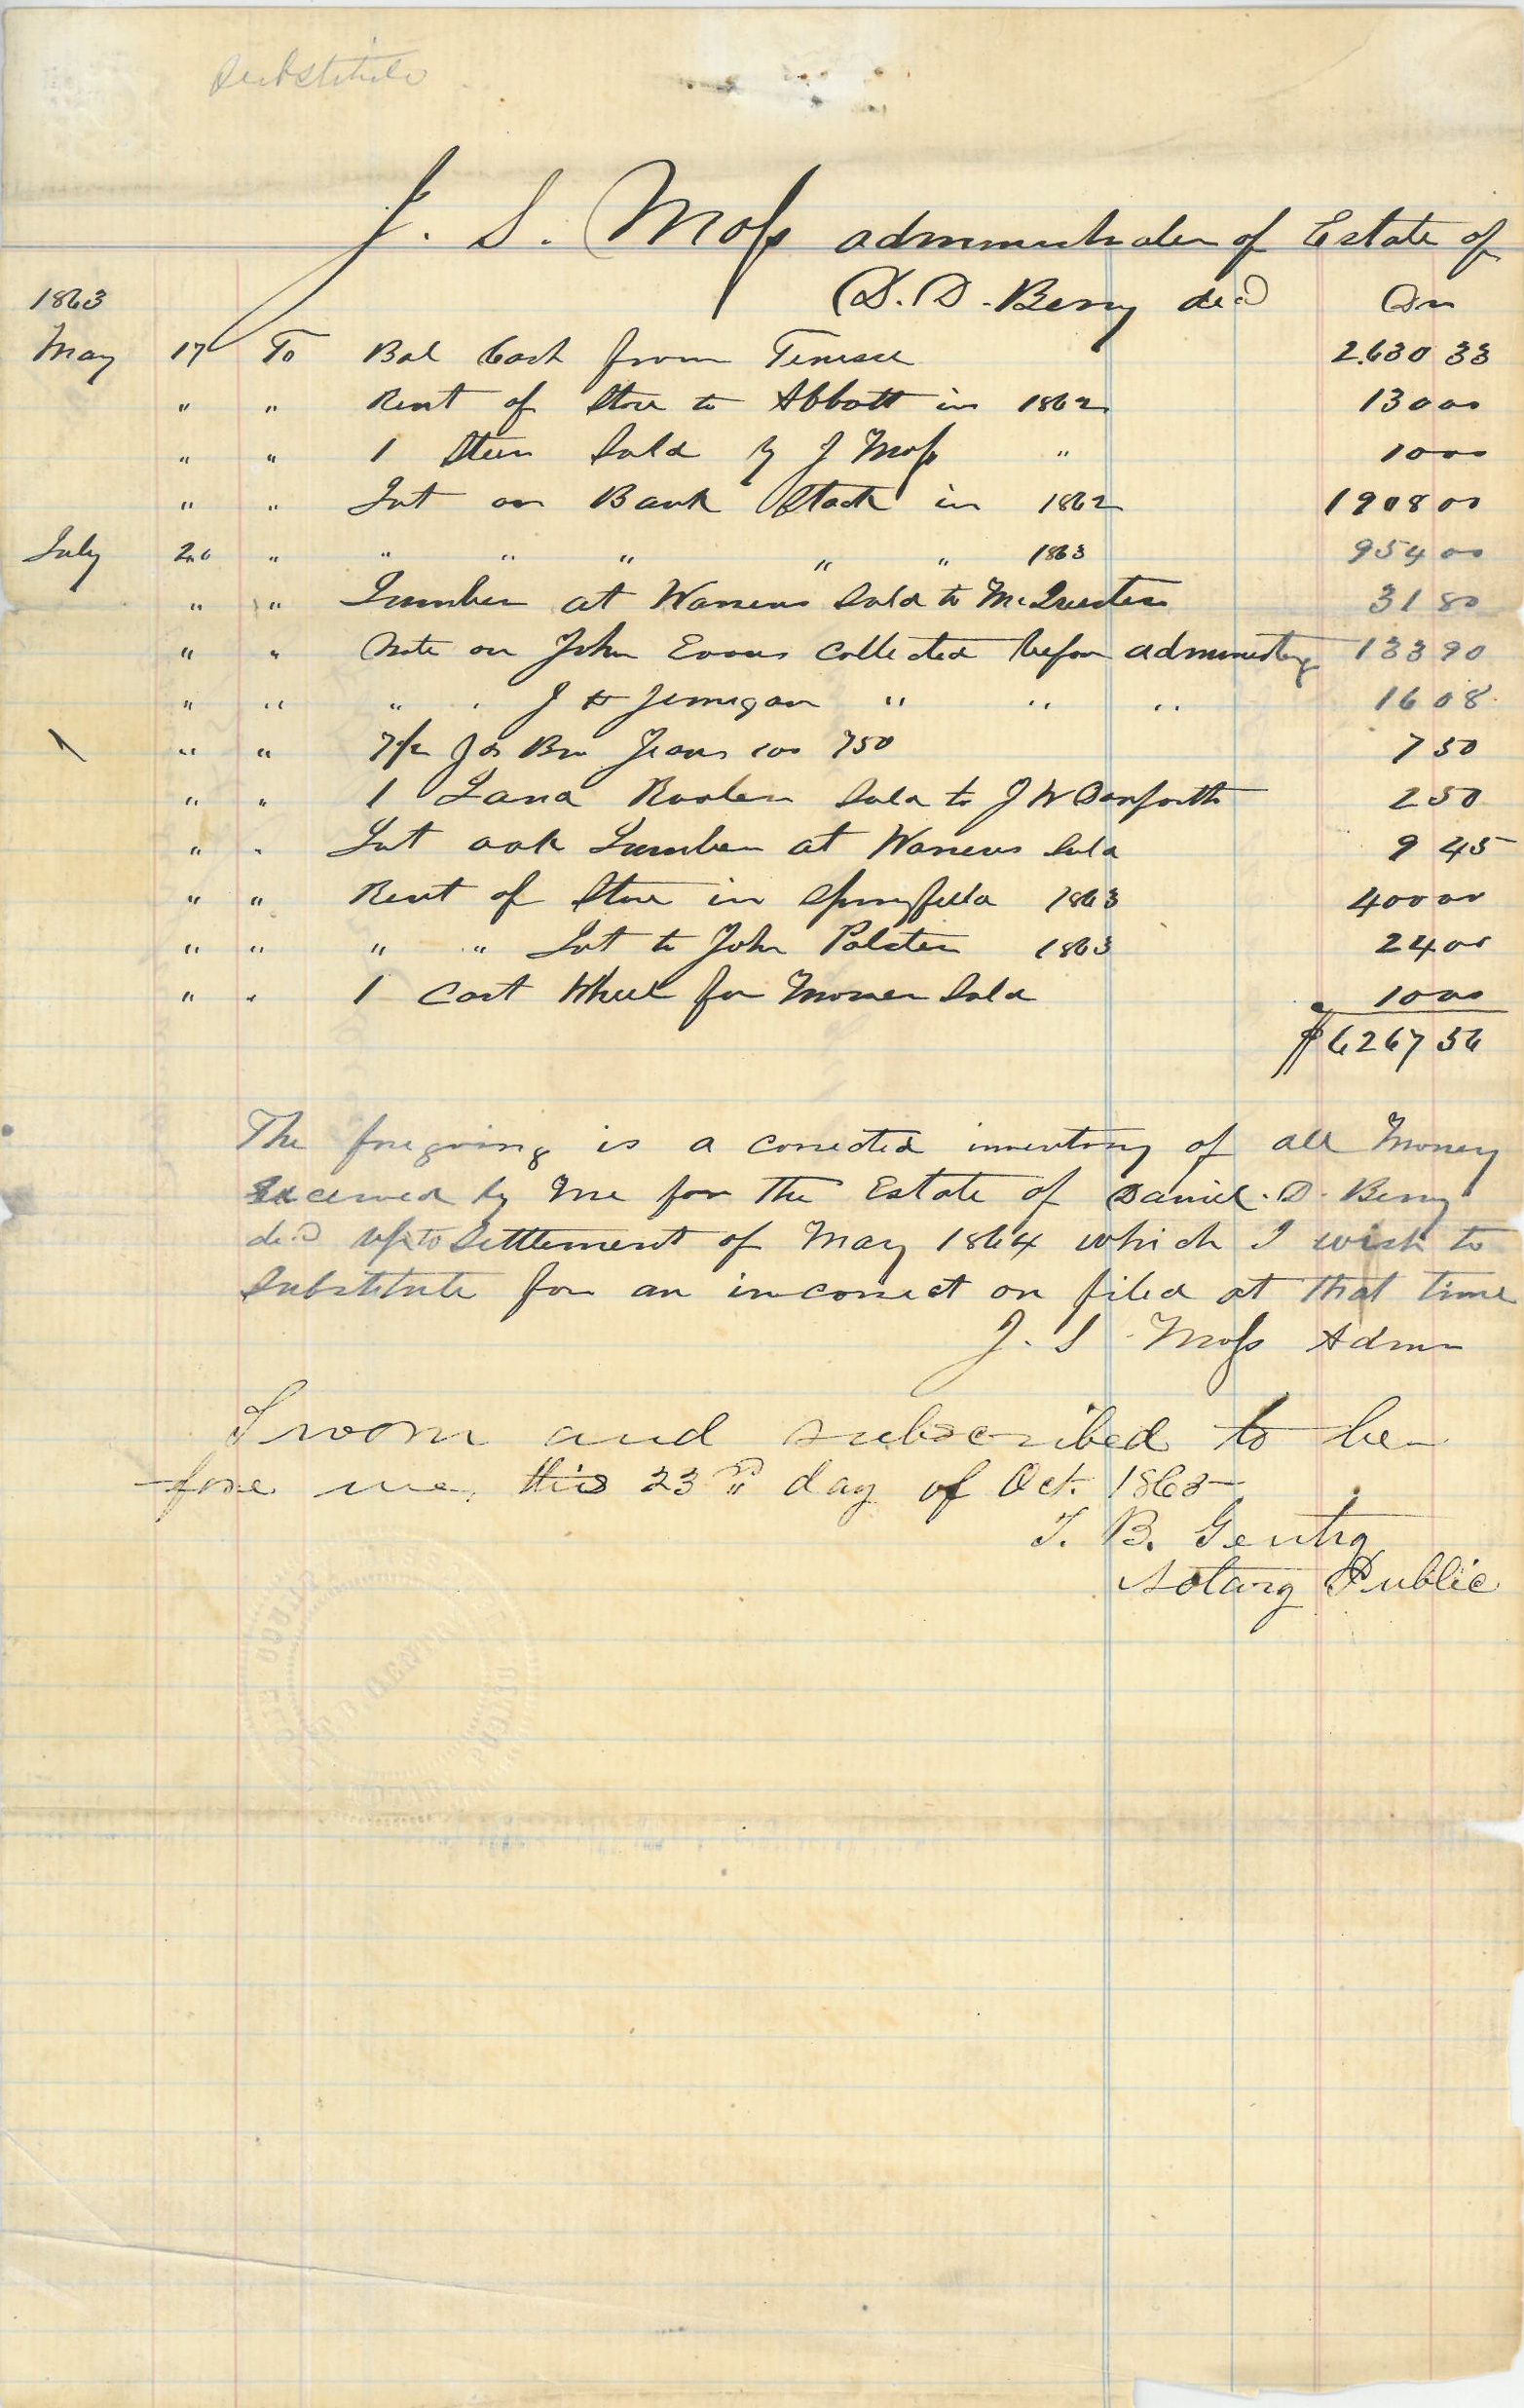 Substitute
J. S. Moss administrator of Estate of
1863 D. D. Berry decd Dr
May 17 To Bal Cash from Tenessee 2630 33
" " Rent of Store to Abbott in 1862 130 00
" " 1 Steer Sold by J Moss " 10 00
" " Int on Bank Stock in 1862 1908 00
July 20 " " " " " " 1863 954 00
" " Lumber at Warrens Sold to McQuerters 31 80
" " Note on John Evans collected before administering 133 90
" " " " J H Jernigan " " " 16 08
" " 7 1/2 yds Bro Jeans 100 750 7 50
" " 1 Land Sold to J W Danforth 2 50
" " Lot oak Lumber at Warrens Sold 9 45
" " Rent of Store in Springfield 1863 400 00
" " " " Lot to John Polsten 1863 24 00
" " 1 Cast Wheel for Mower Sold 10 00
$6267 56
The foregoing is a corrected inventory of all Money
Received by Me for The Estate of Daniel. D. Berry
decd up to Settlement of May 1864 which I wish to
Substitute for an incorrect on filed at that time
J. S. Moss Admr
Sworn and subscribed to be-
-fore me, this 23rd day of Oct. 1865
T. B. Gentry
Notary Public
T. B. GENTRY